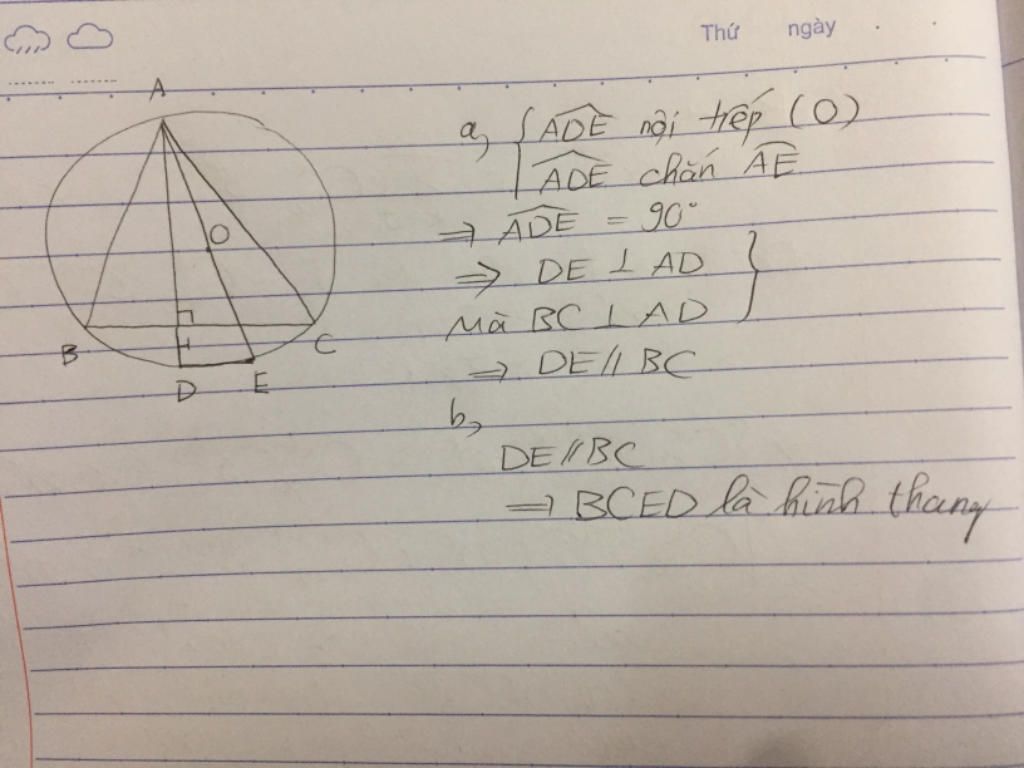 Thứ ngày
A
O
B
C
D
E
a, { \widehat{ADE} nội tiếp (O)
\widehat{ADE} chắn \overset{\frown}{AE}
⇒ \widehat{ADE} = 90°
⇒ DE ⊥ AD }
Mà BC ⊥ AD
⇒ DE // BC
b,
DE // BC
⇒ BCED là hình thang